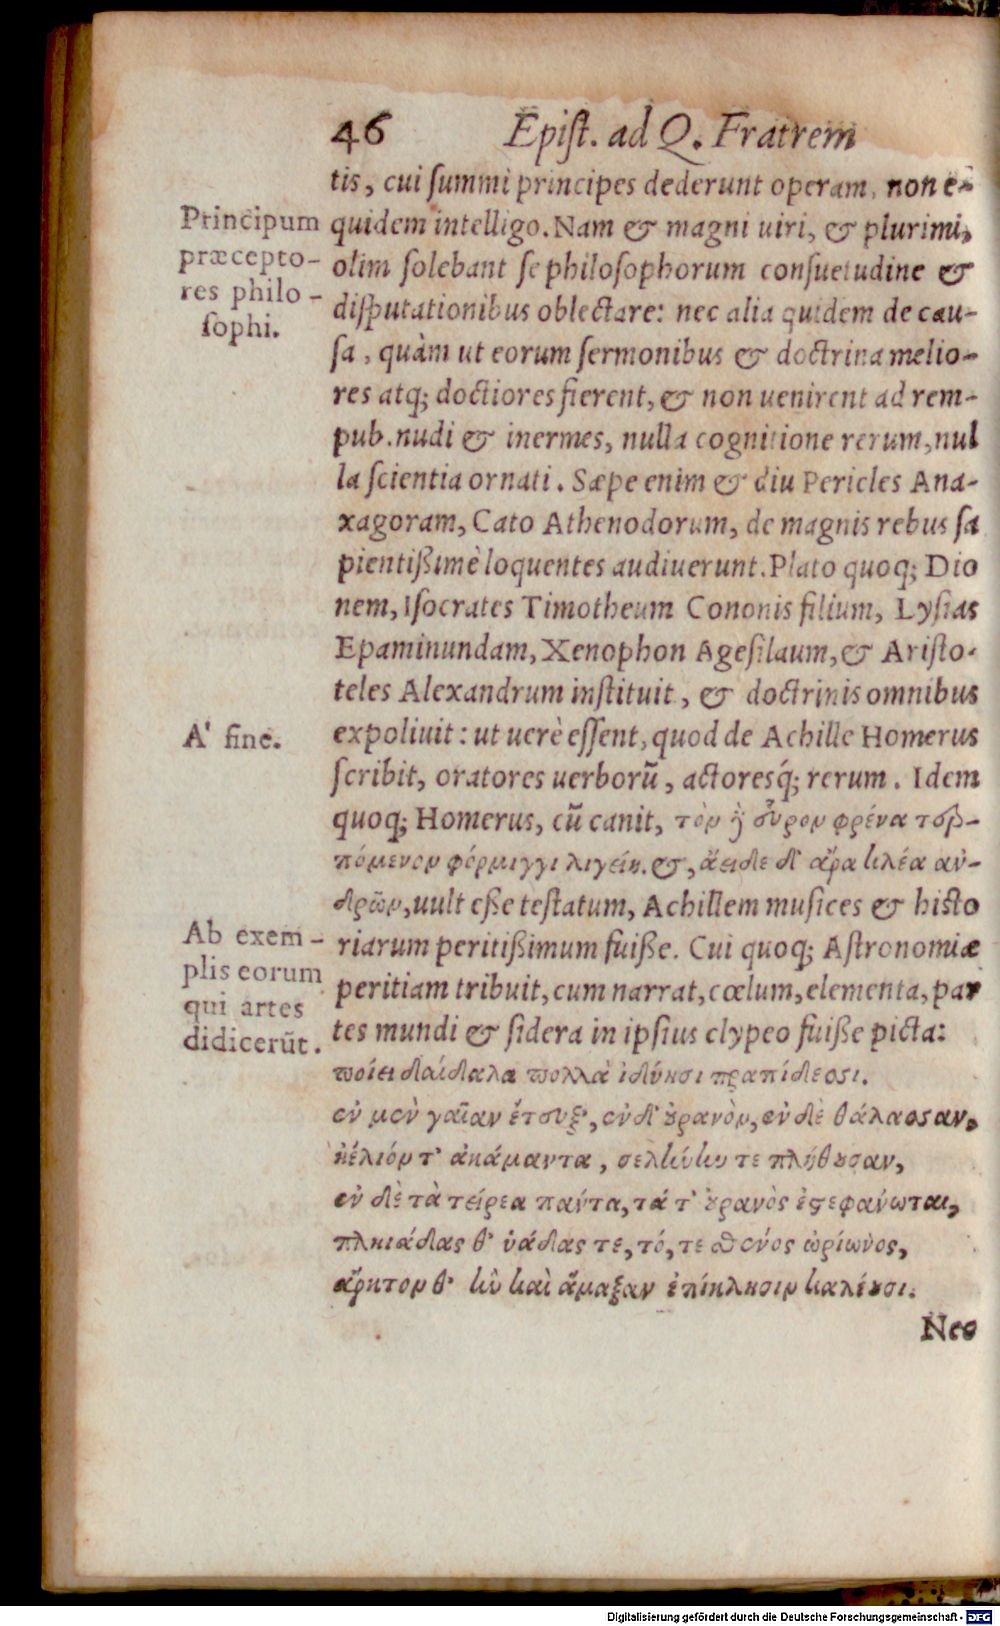 46 Epiſt. ad Q. Fratrem
tis, cui ſummi principes dederunt operam, non e-
quidem intelligo. Nam & magni uiri, & plurimi,
olim ſolebant ſe philoſophorum conſuetudine &
diſputationibus oblectare: nec alia quidem de cau-
ſa, quàm ut eorum ſermonibus & doctrina melio-
res atq; doctiores fierent, & non uenirent ad rem-
pub. nudi & inermes, nulla cognitione rerum, nul
la ſcientia ornati. Sæpe enim & diu Pericles Ana-
xagoram, Cato Athenodorum, de magnis rebus ſa
pientißimè loquentes audiuerunt. Plato quoq; Dio
nem, Iſocrates Timotheum Cononis filium, Lyſias
Epaminundam, Xenophon Ageſilaum, & Ariſto-
teles Alexandrum inſtituit, & doctrinis omnibus
expoliuit: ut uerè eſſent, quod de Achille Homerus
ſcribit, oratores uerborũ, actoresq́; rerum. Idem
quoq; Homerus, cũ canit, τὸν δ᾽ εὗρον φρένα τερ-
πόμενον φόρμιγγι λιγείη. &, ἄειδε δ᾽ ἄρα κλέα ἀν-
δρῶν, uult eße teſtatum, Achillem muſices & hiſto
riarum peritißimum fuiße. Cui quoq; Aſtronomiæ
peritiam tribuit, cum narrat, cœlum, elementa, par
tes mundi & ſidera in ipſius clypeo fuiße picta:
ποίει δαίδαλα πολλὰ ἰδύησι πραπίδεσσι.
ἐν μὲν γαῖαν ἔτευξ᾽, ἐν δ᾽ ȣ̓ρανὸν, ἐν δὲ θάλασσαν,
ἠέλιόν τ᾽ ἀκάμαντα, σελήνην τε πλήθȣσαν,
ἐν δὲ τὰ τείρεα πάντα, τά τ᾽ ȣ̓ρανὸς ἐϛεφάνωται,
πληιάδας θ᾽ ὑάδας τε, τό, τε σθένος ὠρίωνος,
ἄρκτον θ᾽ ἣν καὶ ἅμαξαν ἐπίκλησιν καλέȣσι.
Neo
Principum
præcepto-
res philo-
ſophi.
A' fine.
Ab exem-
plis eorum
qui artes
didicerũt.
Digitalisierung gefördert durch die Deutsche Forschungsgemeinschaft - DFG